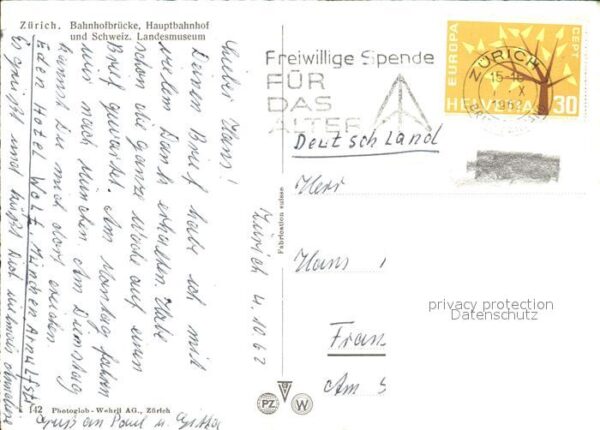 Zürich. Bahnhofbrücke, Hauptbahnhof
und Schweiz. Landesmuseum
Zürich 4.10.62
Lieber Hans!
Deinen Brief habe ich mit
vielem Dank erhalten. Habe
schon die ganze Woche auf einen
Brief gewartet. Am Montag fahren
wir nach München. Am Dienstag
kannst Du mich dort erreichen.
Eden Hotel Wolf, München Arnulfstr
Es grüsst und küßt Dich
Gruss an Paul u.
142 Photoglob-Wehrli AG., Zürich
Fabrication suisse
PZ W
Freiwillige Spende
FÜR
DAS
ALTER
ZÜRICH
15-16
X
1962
EUROPA
CEPT
HELVETIA 30
Deutschland
Herr
Hans
Fran
Am S
privacy protection
Datenschutz